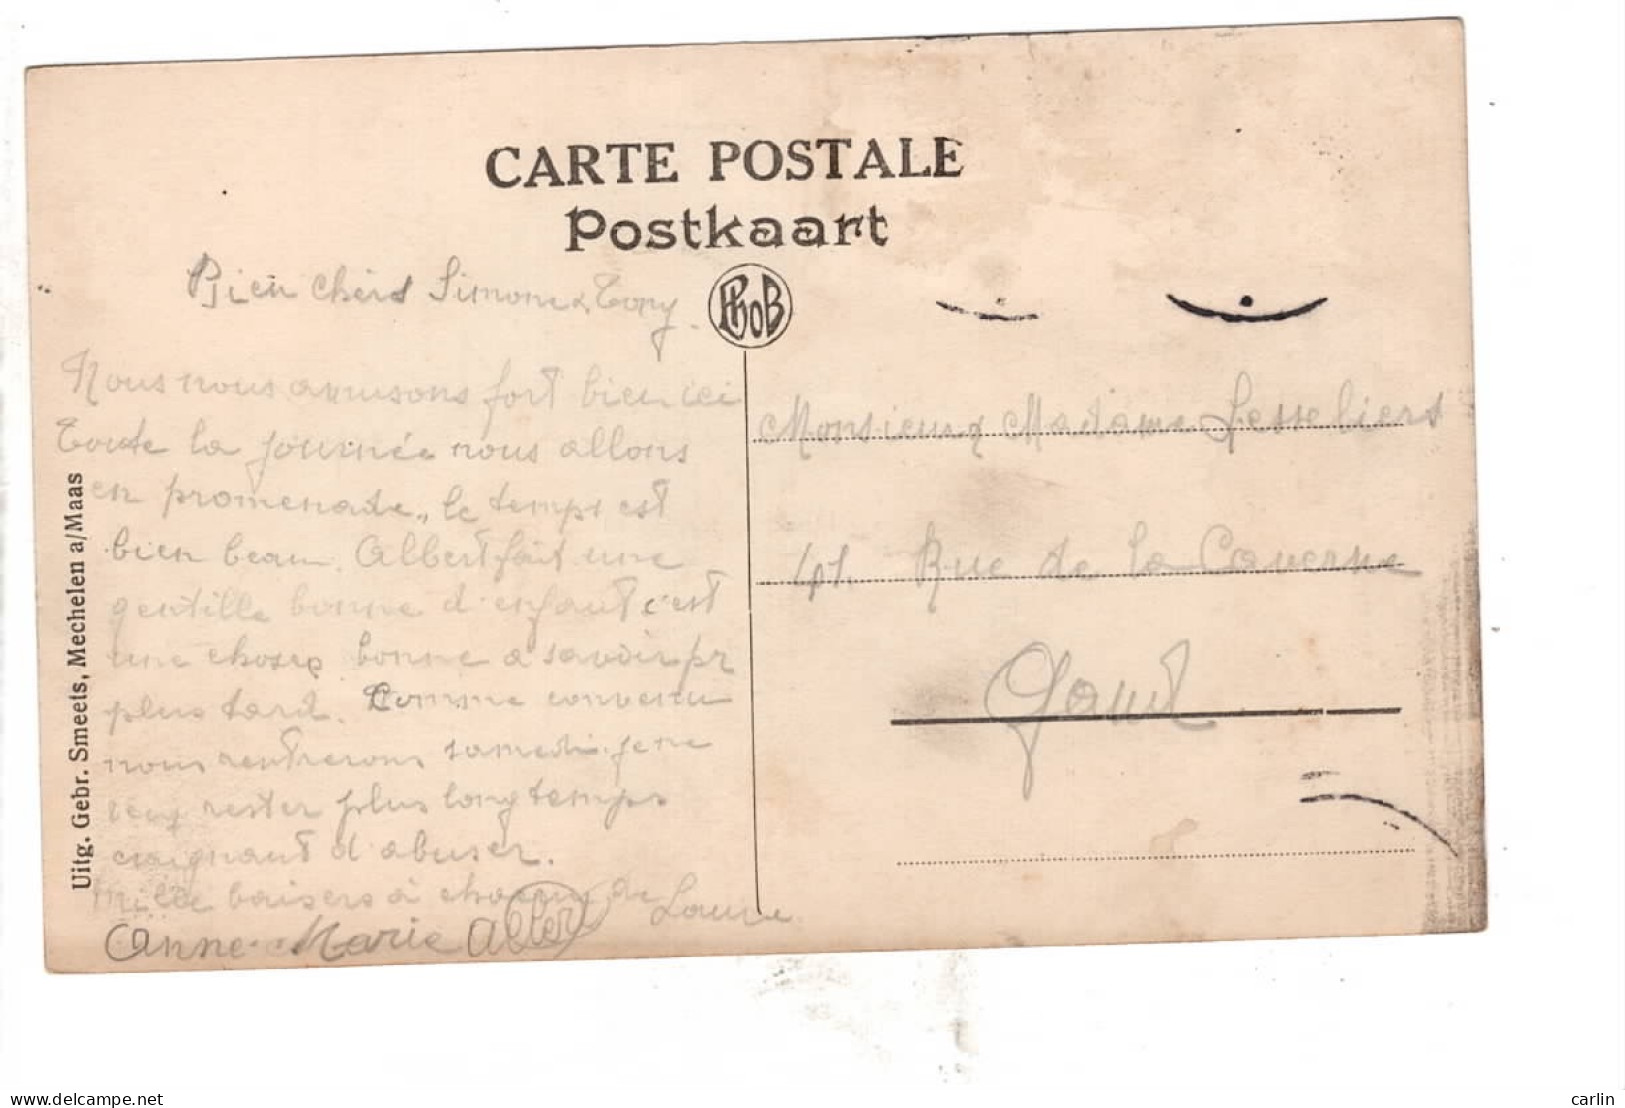 CARTE POSTALE
Postkaart
PhoB
Bien chers Simone & Tony.
Nous nous amusons fort bien ici
Toute la journée nous allons
en promenade, le temps est
bien beau. Albert fait une
gentille bonne d'enfant c'est
une chose bonne à savoir pr
plus tard. Comme convenu
nous rentrerons samedi. je ne
veux rester plus longtemps
craignant d'abuser.
Mille baisers à chacun de Laure
Anne-Marie Albert
Uitg. Gebr. Smeets, Mechelen a/Maas
Monsieur & Madame
41. Rue de la Caverne
Gand
www.delcampe.net
carlin